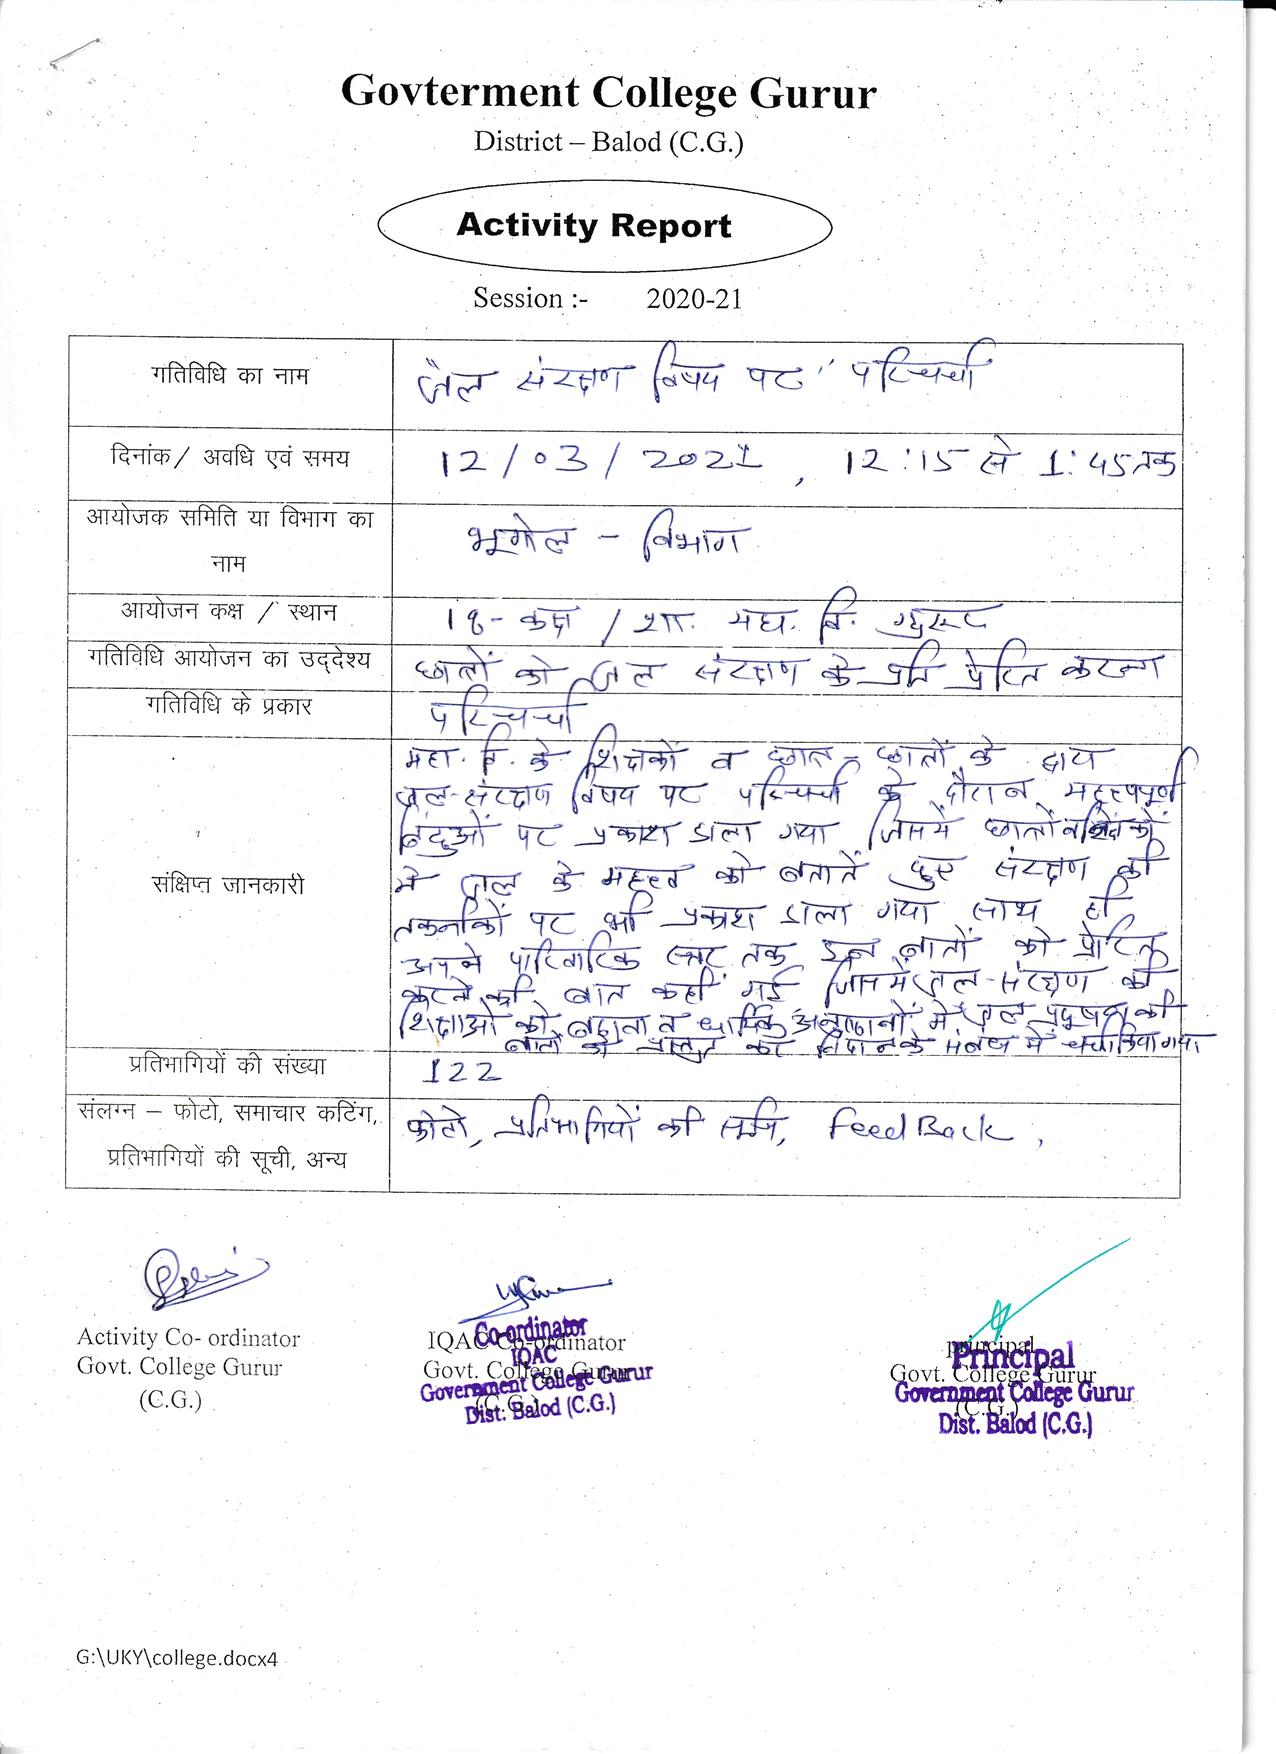 Govterment College Gurur
District – Balod (C.G.)
Activity Report
Session :- 2020-21
गतिविधि का नाम
जल संरक्षण विषय पर परिचर्चा
दिनांक/ अवधि एवं समय
12/03/2021, 12:15 से 1:45 तक
आयोजक समिति या विभाग का
नाम
भूगोल - विभाग
आयोजन कक्ष / स्थान
कक्ष / शा. महा. वि. गुरूर
गतिविधि आयोजन का उद्देश्य
छात्रों को जल संरक्षण के प्रति प्रेरित करना
गतिविधि के प्रकार
परिचर्चा
संक्षिप्त जानकारी
महा. वि. के शिक्षकों व छात्र - छात्रों के द्वारा
जल-संरक्षण विषय पर परिचर्चा के दौरान महत्त्वपूर्ण
बिंदुओं पर प्रकाश डाला गया जिसमें छात्रों
में जल के महत्त्व को बतातें हुए संरक्षण की
तकनीकों पर भी प्रकाश डाला गया साथ ही
अपने पारिवारिक स्तर तक इन बातों को प्रेरित
करने की बात कही गई जिसमें जल-संरक्षण की
को व धार्मिक अनुष्ठानों में जल प्रदूषण की
बातों को प्रस्तुत कर निदान के संबंध में चर्चा किया गया
प्रतिभागियों की संख्या
122
संलग्न – फोटो, समाचार कटिंग,
प्रतिभागियों की सूची, अन्य
फोटो, प्रतिभागियों की सूची, FeedBack,
Activity Co- ordinator
Govt. College Gurur
(C.G.)
IQAC Co-ordinator
Govt. College Gurur
(C.G.)
Co-ordinator
IQAC
Government College Gurur
Dist. Balod (C.G.)
principal
Govt. College Gurur
(C.G.)
Principal
Government College Gurur
Dist. Balod (C.G.)
G:\UKY\college.docx4